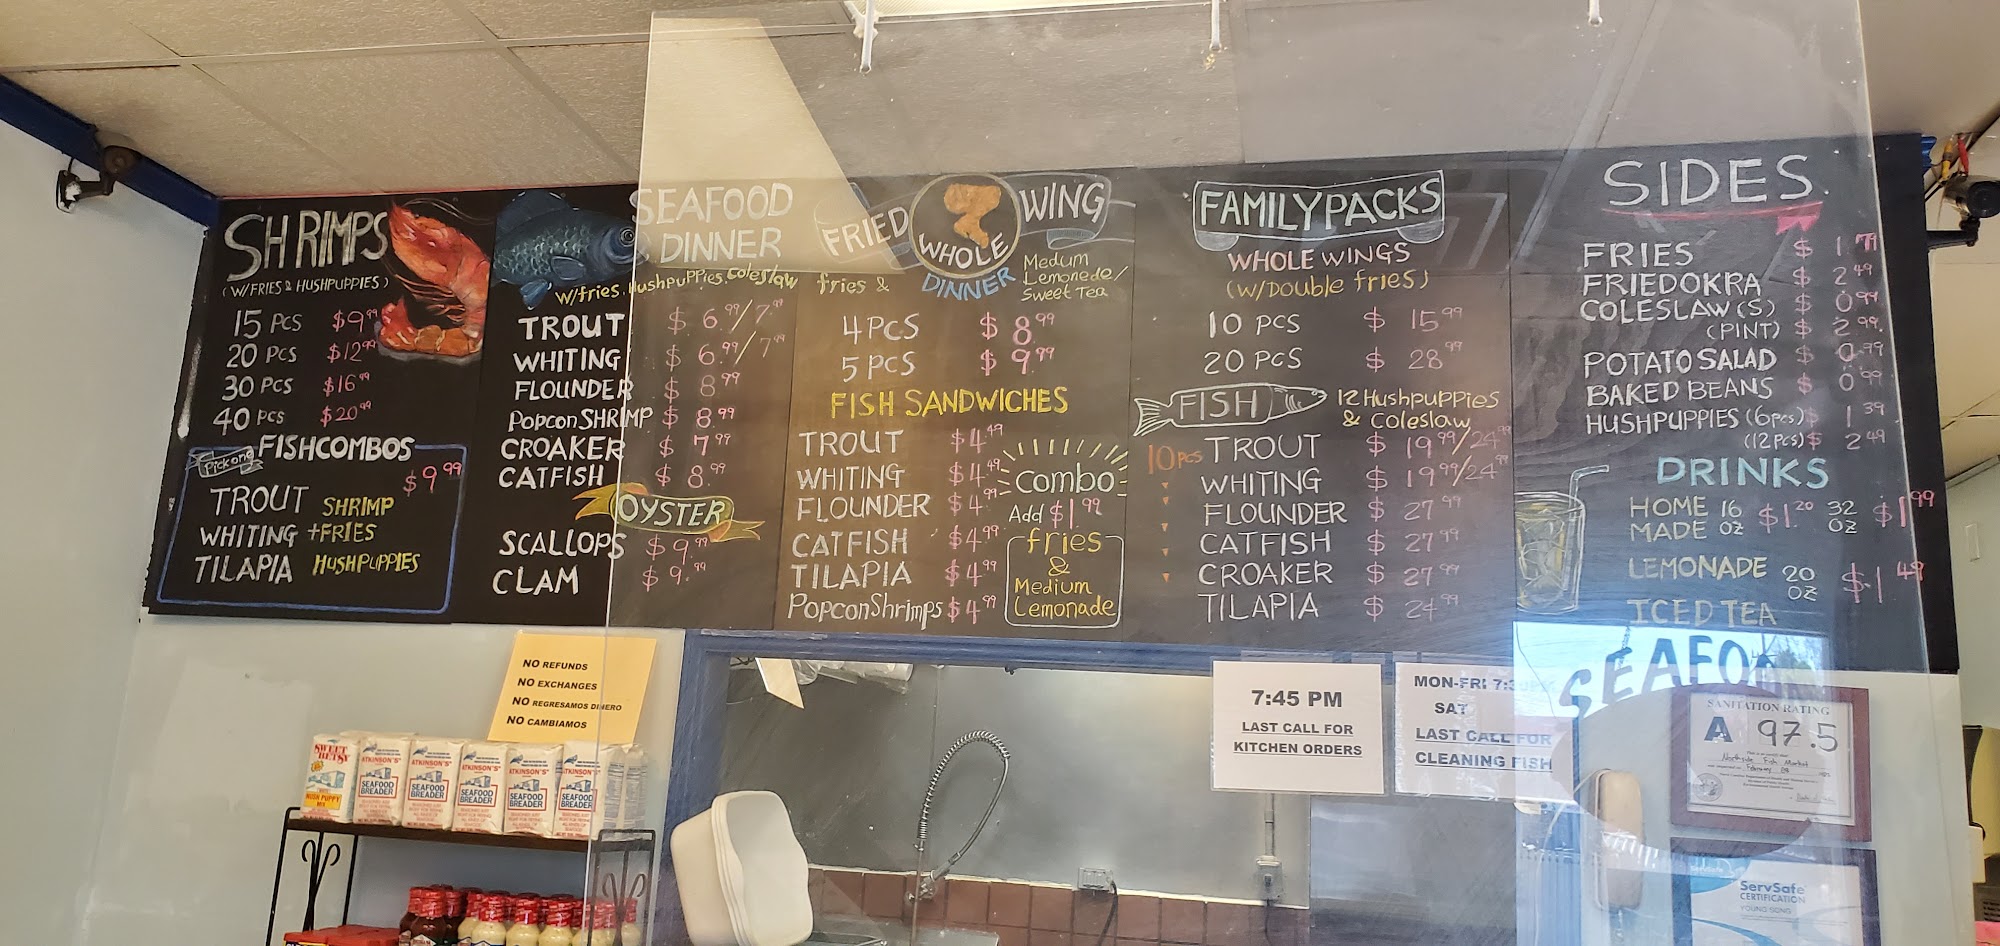 SHRIMPS
(W/FRIES & HUSHPUPPIES)
15 PCS $9.99
20 PCS $12.99
30 PCS $16.99
40 PCS $20.99
Pick one FISHCOMBOS
$9.99
TROUT SHRIMP
WHITING +FRIES
TILAPIA HUSHPUPPIES
SEAFOOD
DINNER
w/fries, Hushpuppies, coleslaw
TROUT $6.99/7.99
WHITING $6.99/7.99
FLOUNDER $8.99
Popcon SHRIMP $8.99
CROAKER $7.99
CATFISH $8.99
OYSTER
SCALLOPS $9.99
CLAM $9.99
FRIED WHOLE WING
DINNER
fries &
Medum
Lemonede/
Sweet Tea
4 PCS $8.99
5 PCS $9.99
FISH SANDWICHES
TROUT $4.49
WHITING $4.49
FLOUNDER $4.99
CATFISH $4.99
TILAPIA $4.99
PopconShrimps $4.99
combo
Add $1.99
fries
&
Medium
Lemonade
FAMILYPACKS
WHOLE WINGS
(W/Double fries)
10 PCS $15.99
20 PCS $28.99
FISH 12 Hushpuppies
& Coleslaw
10pcs TROUT $19.99/24.99
WHITING $19.99/24.99
FLOUNDER $27.99
CATFISH $27.99
CROAKER $27.99
TILAPIA $24.99
SIDES
FRIES $1.79
FRIEDOKRA $2.49
COLESLAW (S) $0.99
(PINT) $2.99
POTATO SALAD $0.99
BAKED BEANS $0.99
HUSHPUPPIES (6pcs) $1.39
(12pcs) $2.49
DRINKS
HOME MADE 16 OZ $1.20 32 OZ $1.99
LEMONADE 20 OZ $1.49
ICED TEA
NO REFUNDS
NO EXCHANGES
NO REGRESAMOS DINERO
NO CAMBIAMOS
7:45 PM
LAST CALL FOR
KITCHEN ORDERS
MON-FRI
SAT
LAST CALL FOR
CLEANING FISH
SEAFOO
SANITATION RATING
A 97.5
Northside Fish Market
February
ServSafe
ServSafe
CERTIFICATION
YOUNG SONG
SWEET
BETSY
HUSH PUPPY
MIX
ATKINSON'S
SEAFOOD
BREADER
ATKINSON'S
SEAFOOD
BREADER
ATKINSON'S
SEAFOOD
BREADER
ATKINSON'S
SEAFOOD
BREADER
ATKINSON'S
SEAFOOD
BREADER